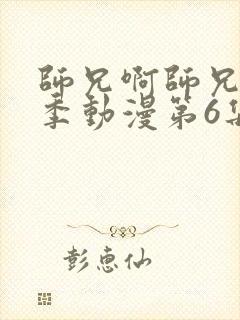 師兄啊師兄
季動漫第6集
彭惠仙